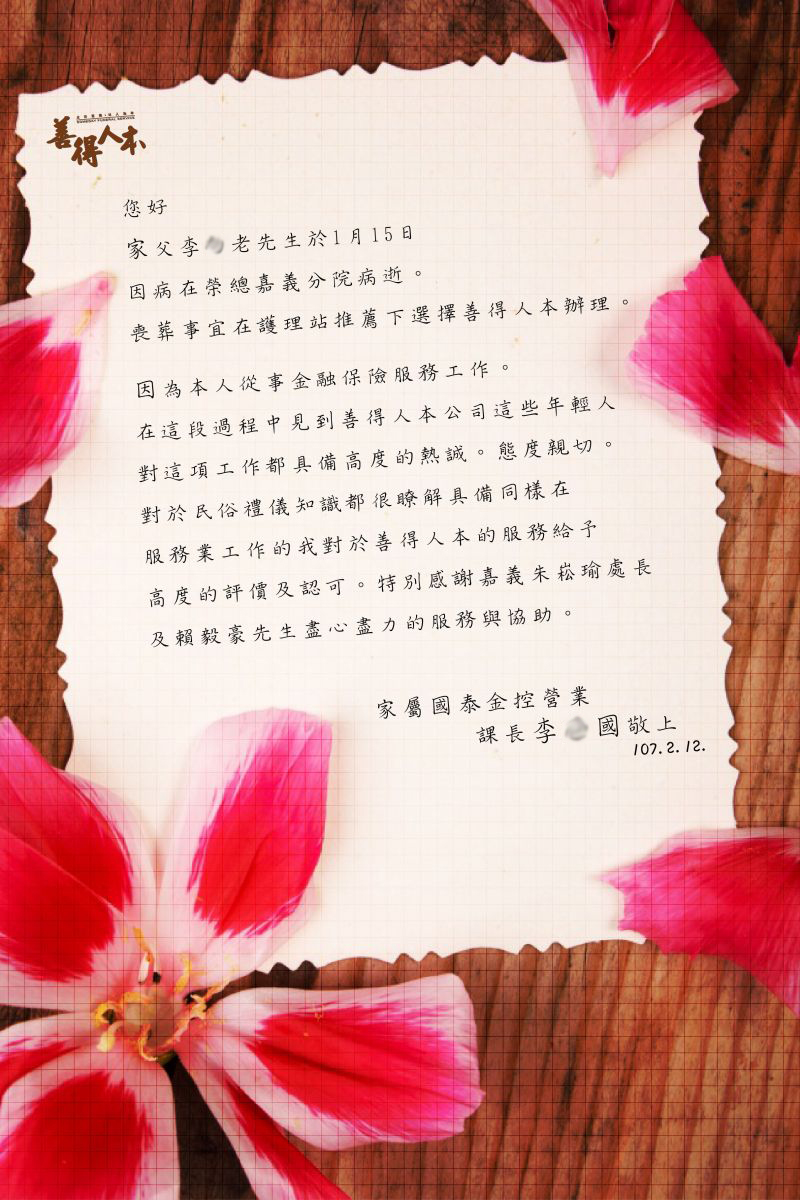 善得人本
您好
家父李 老先生於1月15日
因病在榮總嘉義分院病逝。
喪葬事宜在護理站推薦下選擇善得人本辦理。
因為本人從事金融保險服務工作。
在這段過程中見到善得人本公司這些年輕人
對這項工作都具備高度的熱誠。態度親切。
對於民俗禮儀知識都很瞭解具備同樣在
服務業工作的我對於善得人本的服務給予
高度的評價及認可。特別感謝嘉義朱崧瑜處長
及賴毅豪先生盡心盡力的服務與協助。
家屬國泰金控營業
課長李 國敬上
107.2.12.